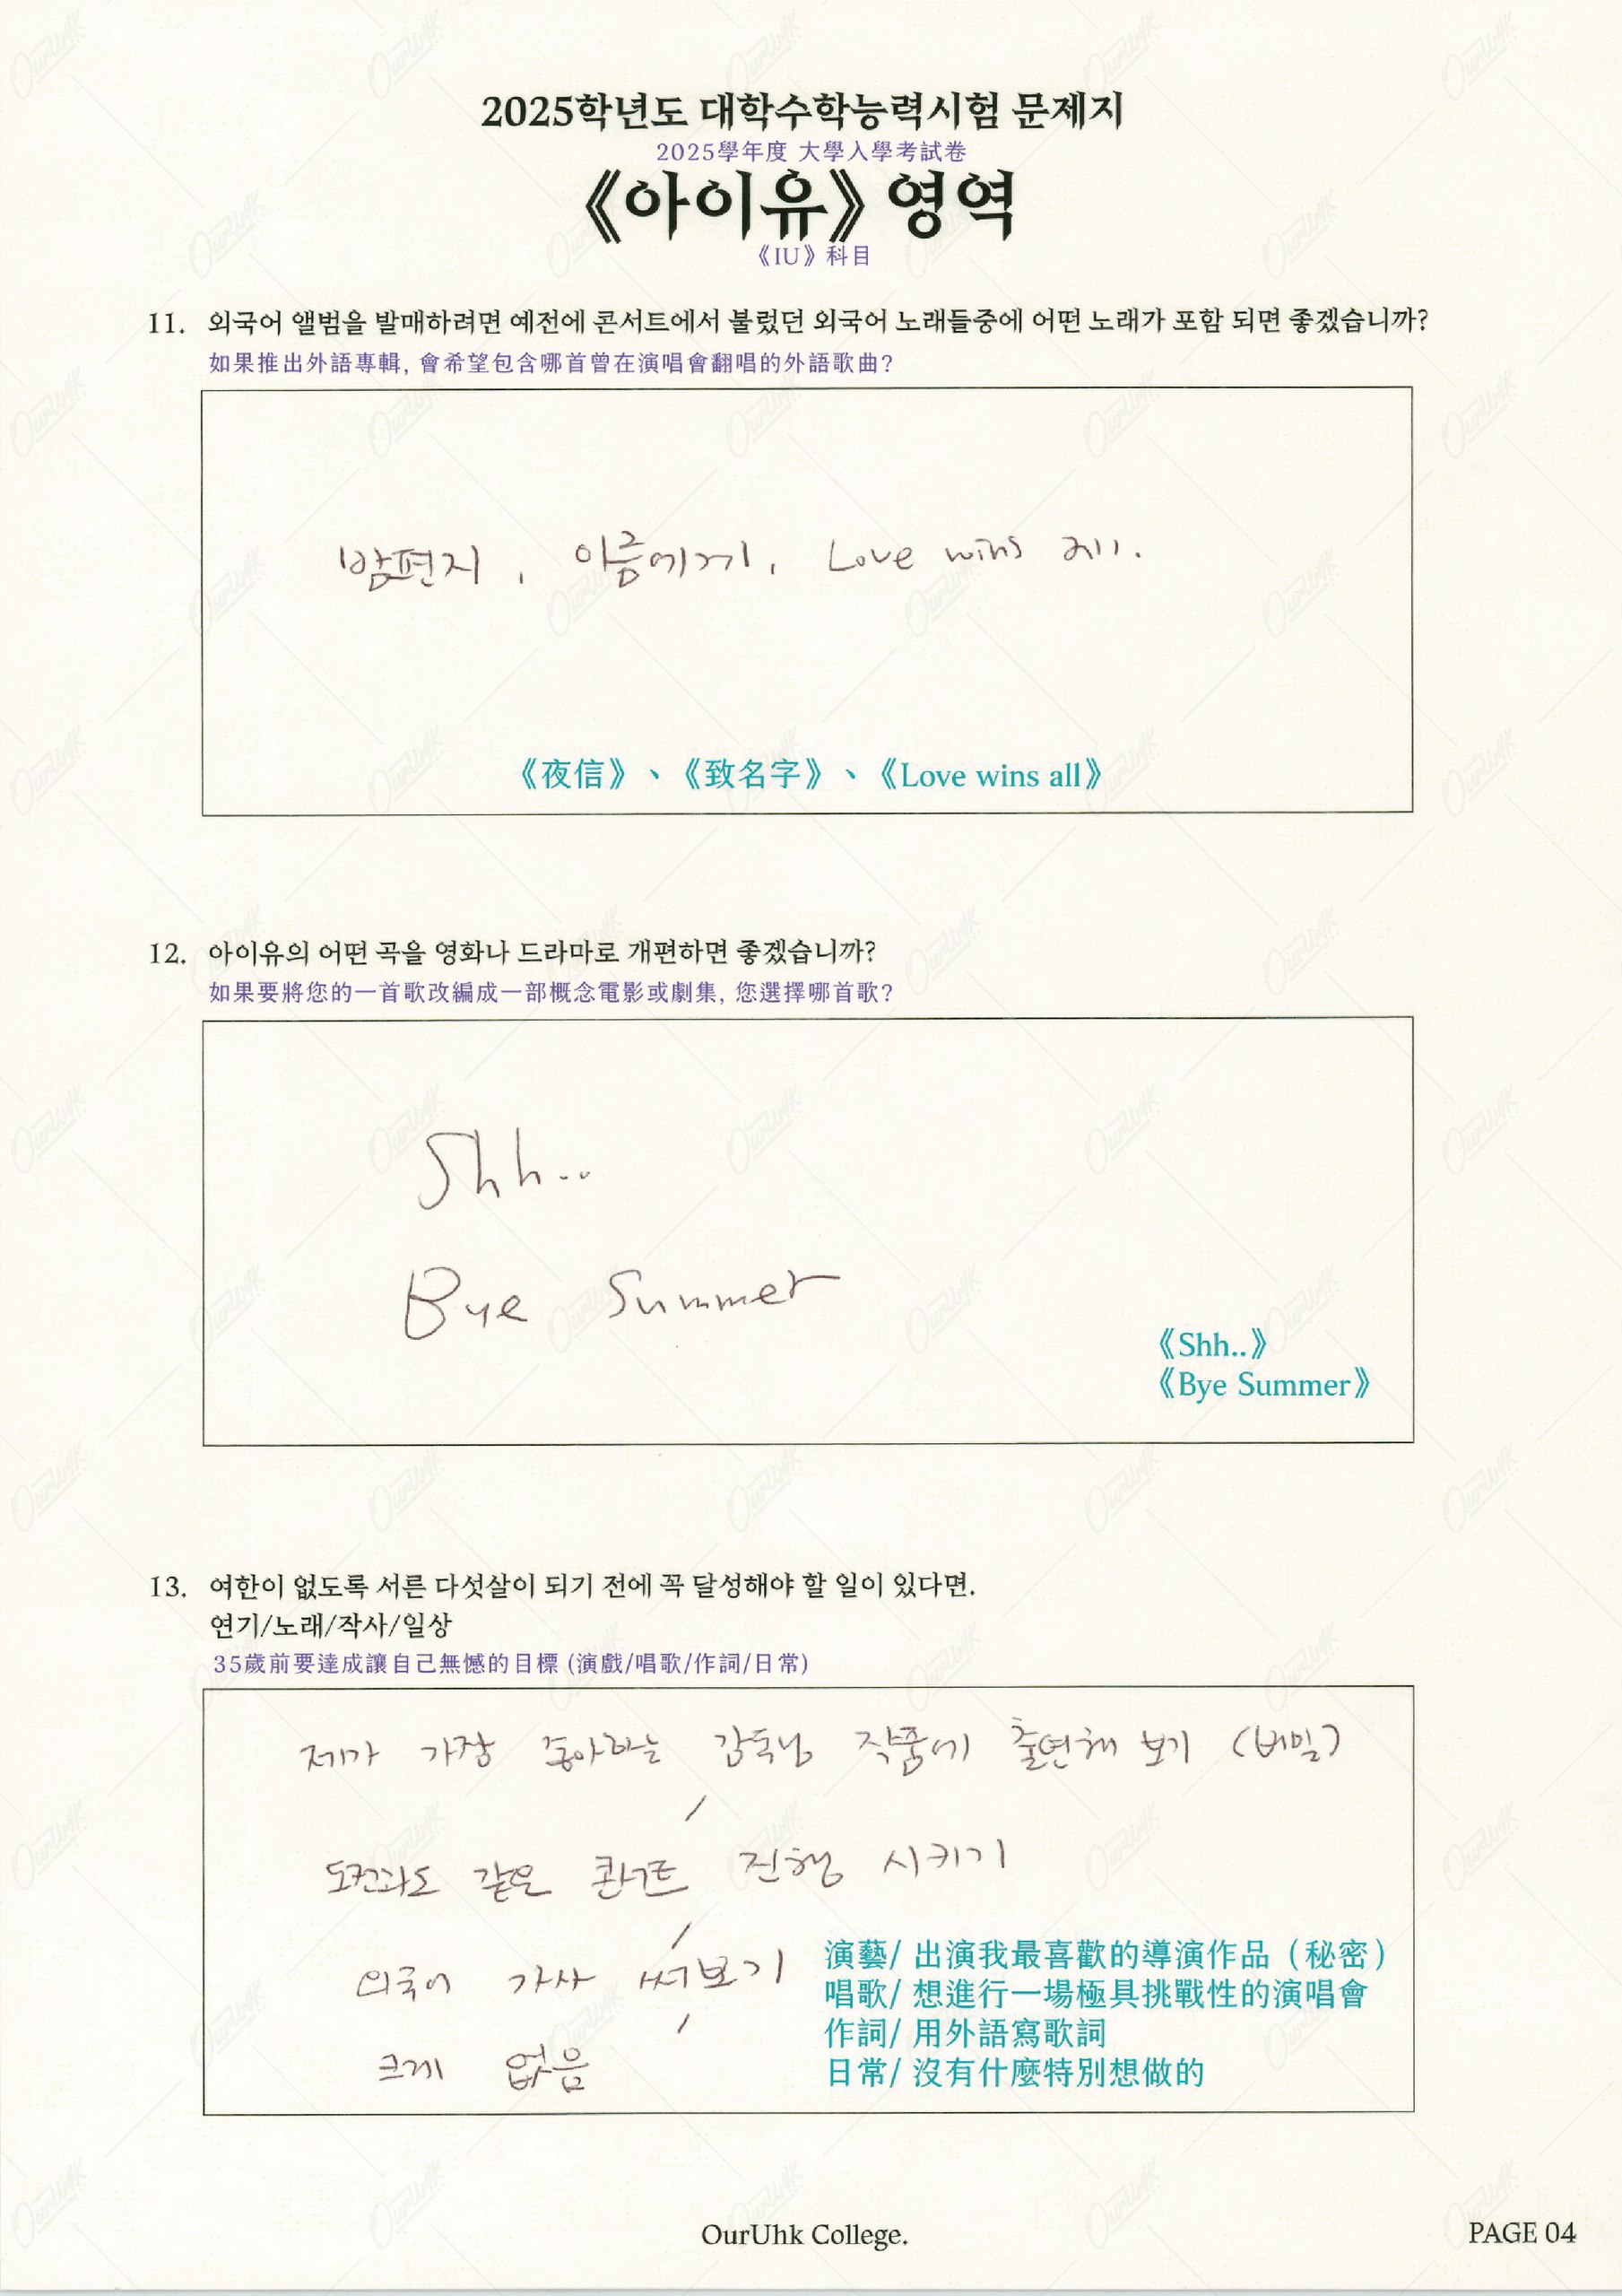 2025학년도 대학수학능력시험 문제지
2025學年度 大學入學考試卷
《아이유》 영역
《IU》科目
11. 외국어 앨범을 발매하려면 예전에 콘서트에서 불렀던 외국어 노래들중에 어떤 노래가 포함 되면 좋겠습니까?
如果推出外語專輯, 會希望包含哪首曾在演唱會翻唱的外語歌曲?
밤편지, 이름에게, Love wins all.
《夜信》、《致名字》、《Love wins all》
12. 아이유의 어떤 곡을 영화나 드라마로 개편하면 좋겠습니까?
如果要將您的一首歌改編成一部概念電影或劇集, 您選擇哪首歌?
Shh..
Bye Summer
《Shh..》
《Bye Summer》
13. 여한이 없도록 서른 다섯살이 되기 전에 꼭 달성해야 할 일이 있다면.
연기/노래/작사/일상
35歲前要達成讓自己無憾的目標 (演戲/唱歌/作詞/日常)
제가 가장 좋아하는 감독님 작품에 출연해 보기 (비밀)
/
도전과도 같은 콘서트 진행 시키기
/
외국어 가사 써보기
/
크게 없음
演藝/ 出演我最喜歡的導演作品（秘密）
唱歌/ 想進行一場極具挑戰性的演唱會
作詞/ 用外語寫歌詞
日常/ 沒有什麼特別想做的
OurUhk College.
PAGE 04
OurUhk